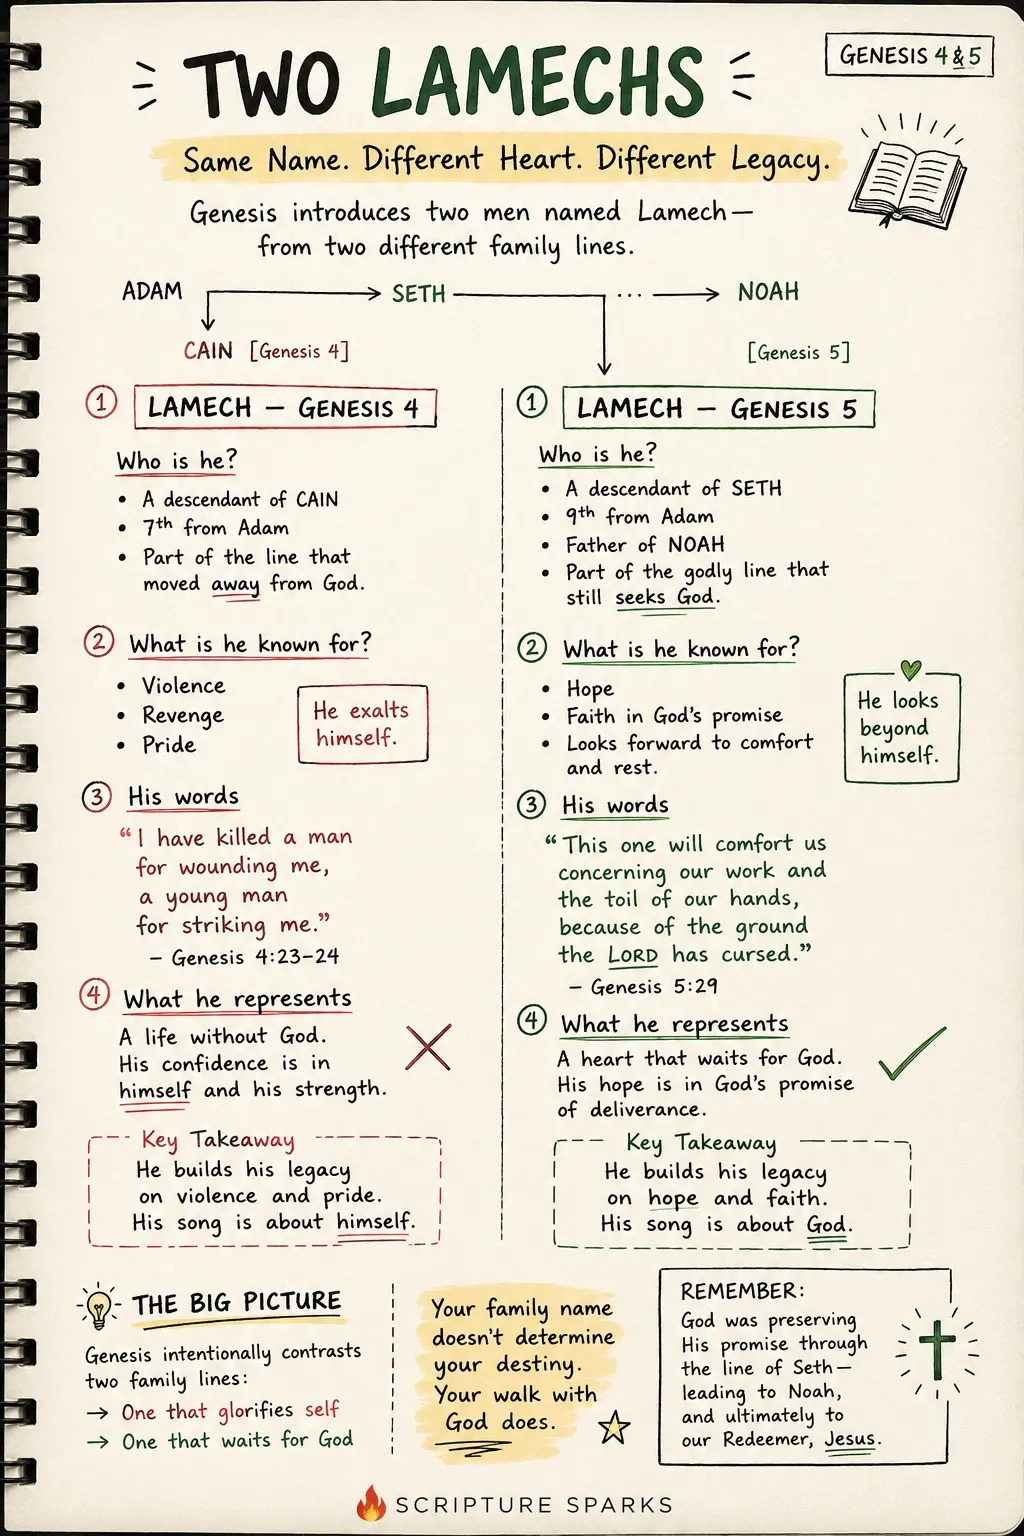 TWO LAMECHS
GENESIS 4 & 5
Same Name. Different Heart. Different Legacy.
Genesis introduces two men named Lamech—
from two different family lines.
ADAM
SETH
...
NOAH
CAIN [Genesis 4]
[Genesis 5]
1 LAMECH — GENESIS 4
Who is he?
• A descendant of CAIN
• 7th from Adam
• Part of the line that
moved away from God.
2 What is he known for?
• Violence
• Revenge
• Pride
He exalts
himself.
3 His words
“I have killed a man
for wounding me,
a young man
for striking me.”
– Genesis 4:23–24
4 What he represents
A life without God.
His confidence is in
himself and his strength.
Key Takeaway
He builds his legacy
on violence and pride.
His song is about himself.
1 LAMECH — GENESIS 5
Who is he?
• A descendant of SETH
• 9th from Adam
• Father of NOAH
• Part of the godly line that
still seeks God.
2 What is he known for?
• Hope
• Faith in God's promise
• Looks forward to comfort
and rest.
He looks
beyond
himself.
3 His words
“This one will comfort us
concerning our work and
the toil of our hands,
because of the ground
the LORD has cursed.”
– Genesis 5:29
4 What he represents
A heart that waits for God.
His hope is in God's promise
of deliverance.
Key Takeaway
He builds his legacy
on hope and faith.
His song is about God.
THE BIG PICTURE
Genesis intentionally contrasts
two family lines:
→ One that glorifies self
→ One that waits for God
Your family name
doesn't determine
your destiny.
Your walk with
God does.
REMEMBER:
God was preserving
His promise through
the line of Seth—
leading to Noah,
and ultimately to
our Redeemer, Jesus.
SCRIPTURE SPARKS